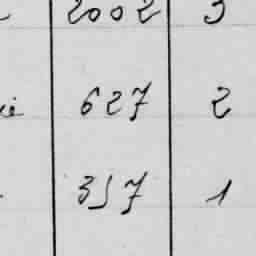 2002 3
627 2
357 1